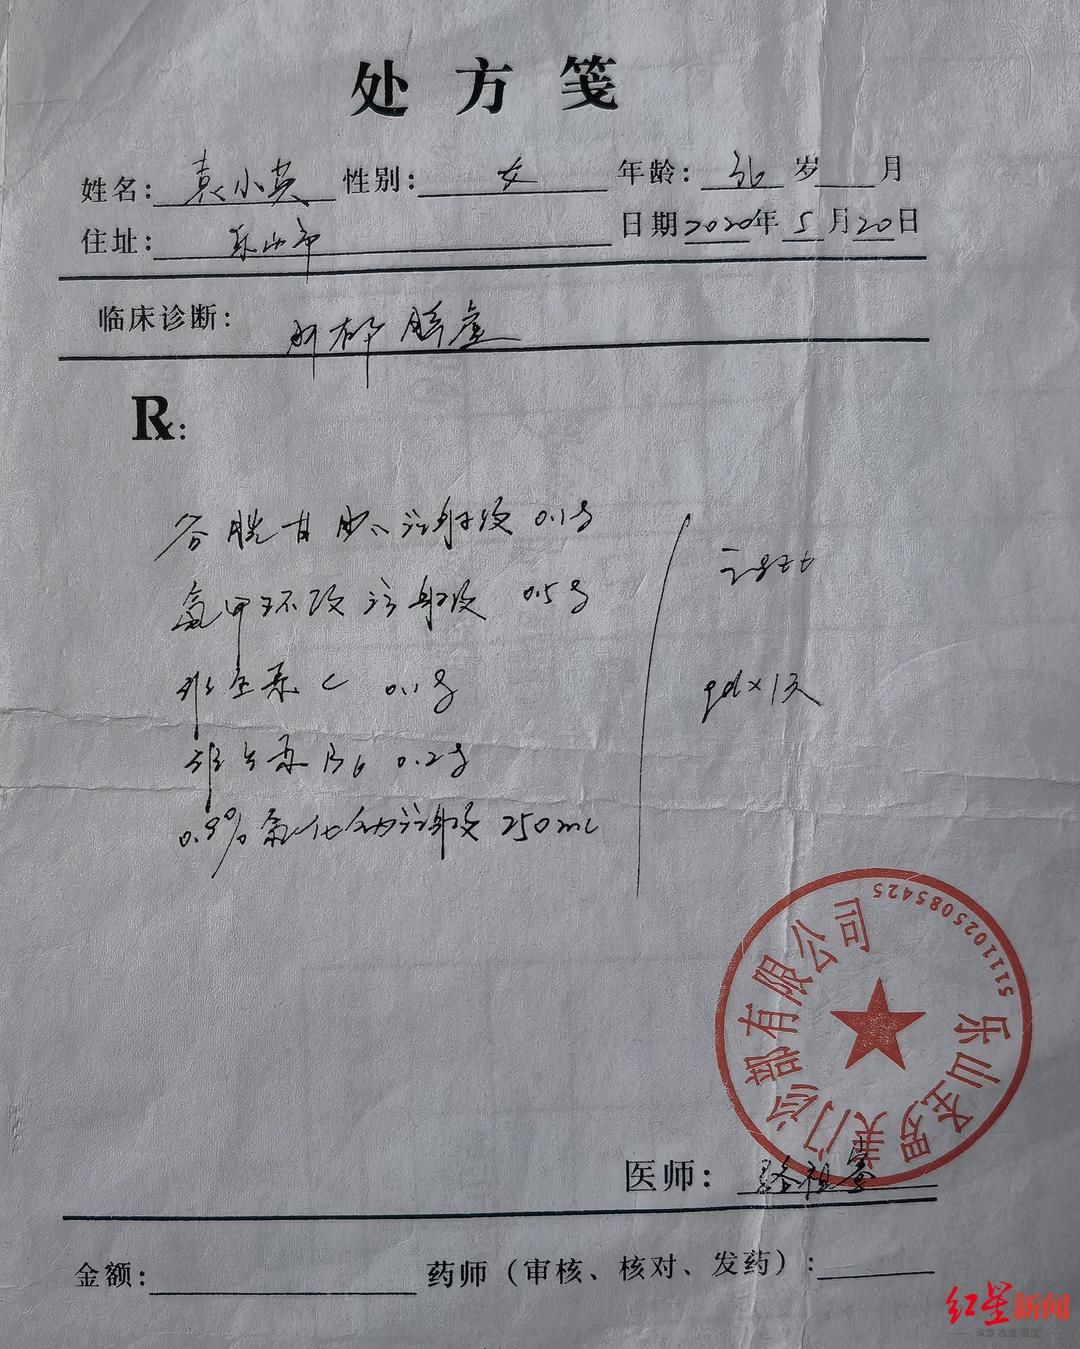 处方笺
姓名：袁小英 性别：女 年龄： 岁 月
住址：乐山市 日期2020年5月20日
临床诊断：肝郁脾虚
R:
谷胱甘肽注射液 0.1g
氨甲环酸注射液 0.5g
维生素C 0.1g
维生素B6 0.2g
0.9%氯化钠注射液 250ml
qd×1天
乐山圣罗美门诊部有限公司
5111025085425
医师：骆祖
金额： 药师（审核、核对、发药）：
红星新闻
深度 态度 温度